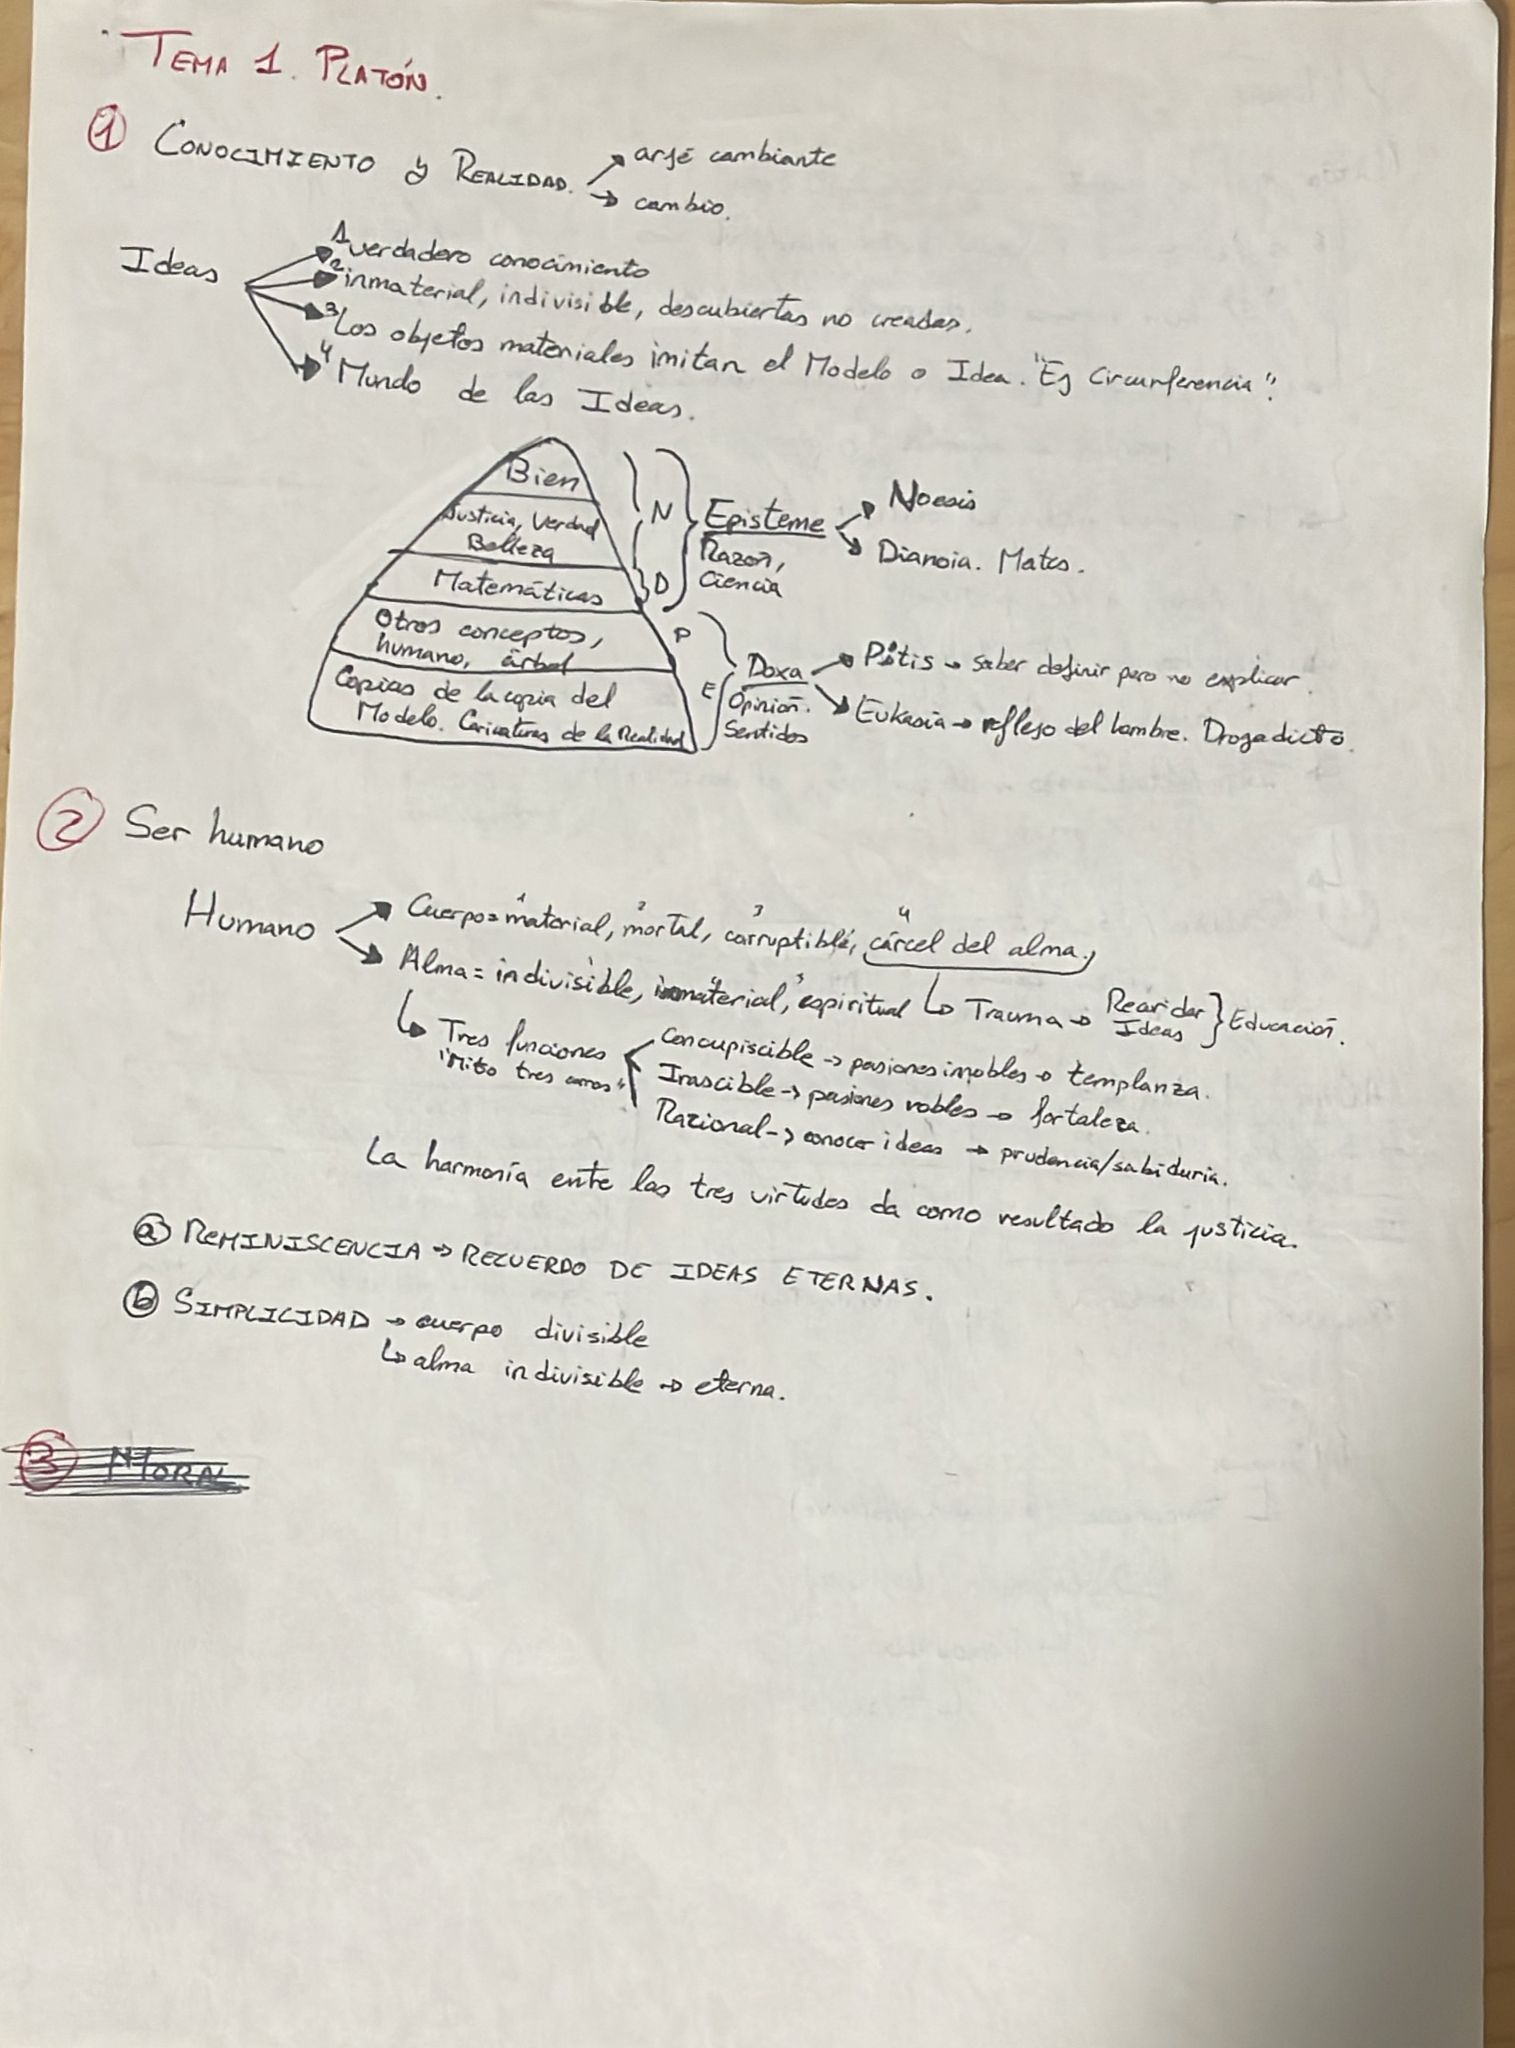 TEMA 1. PLATÓN.
1 CONOCIMIENTO y REALIDAD. → arjé cambiante
→ cambio.
Ideas
1 verdadero conocimiento
2 inmaterial, indivisible, descubiertas no creadas.
3 Los objetos materiales imitan el Modelo o Idea. "Ej Circunferencia".
4 Mundo de las Ideas.
Bien
Justicia, Verdad
Belleza
Matemáticas
Otros conceptos,
humano, árbol
Copias de la copia del
Modelo. Caricaturas de la Realidad
N
D
P
E
Episteme → Noesis
Razón,
Ciencia
→ Dianoia. Mates.
Doxa → Pistis → saber definir pero no explicar.
Opinión.
Sentidos
→ Eukasia → reflejo del hombre. Drogadicto.
2 Ser humano
Humano → Cuerpo = 1 material, 2 mortal, 3 corruptible, 4 cárcel del alma.
→ Alma = indivisible, inmaterial, espiritual ↳ Trauma → Recordar Ideas } Educación.
↳ Tres funciones
"Mito tres carros"
Concupiscible → pasiones innobles → templanza.
Irascible → pasiones nobles → fortaleza.
Racional → conocer ideas → prudencia/sabiduria.
La harmonía entre las tres virtudes da como resultado la justicia.
a REMINISCENCIA → RECUERDO DE IDEAS ETERNAS.
b SIMPLICIDAD → cuerpo divisible
↳ alma indivisible → eterna.
3 MORA